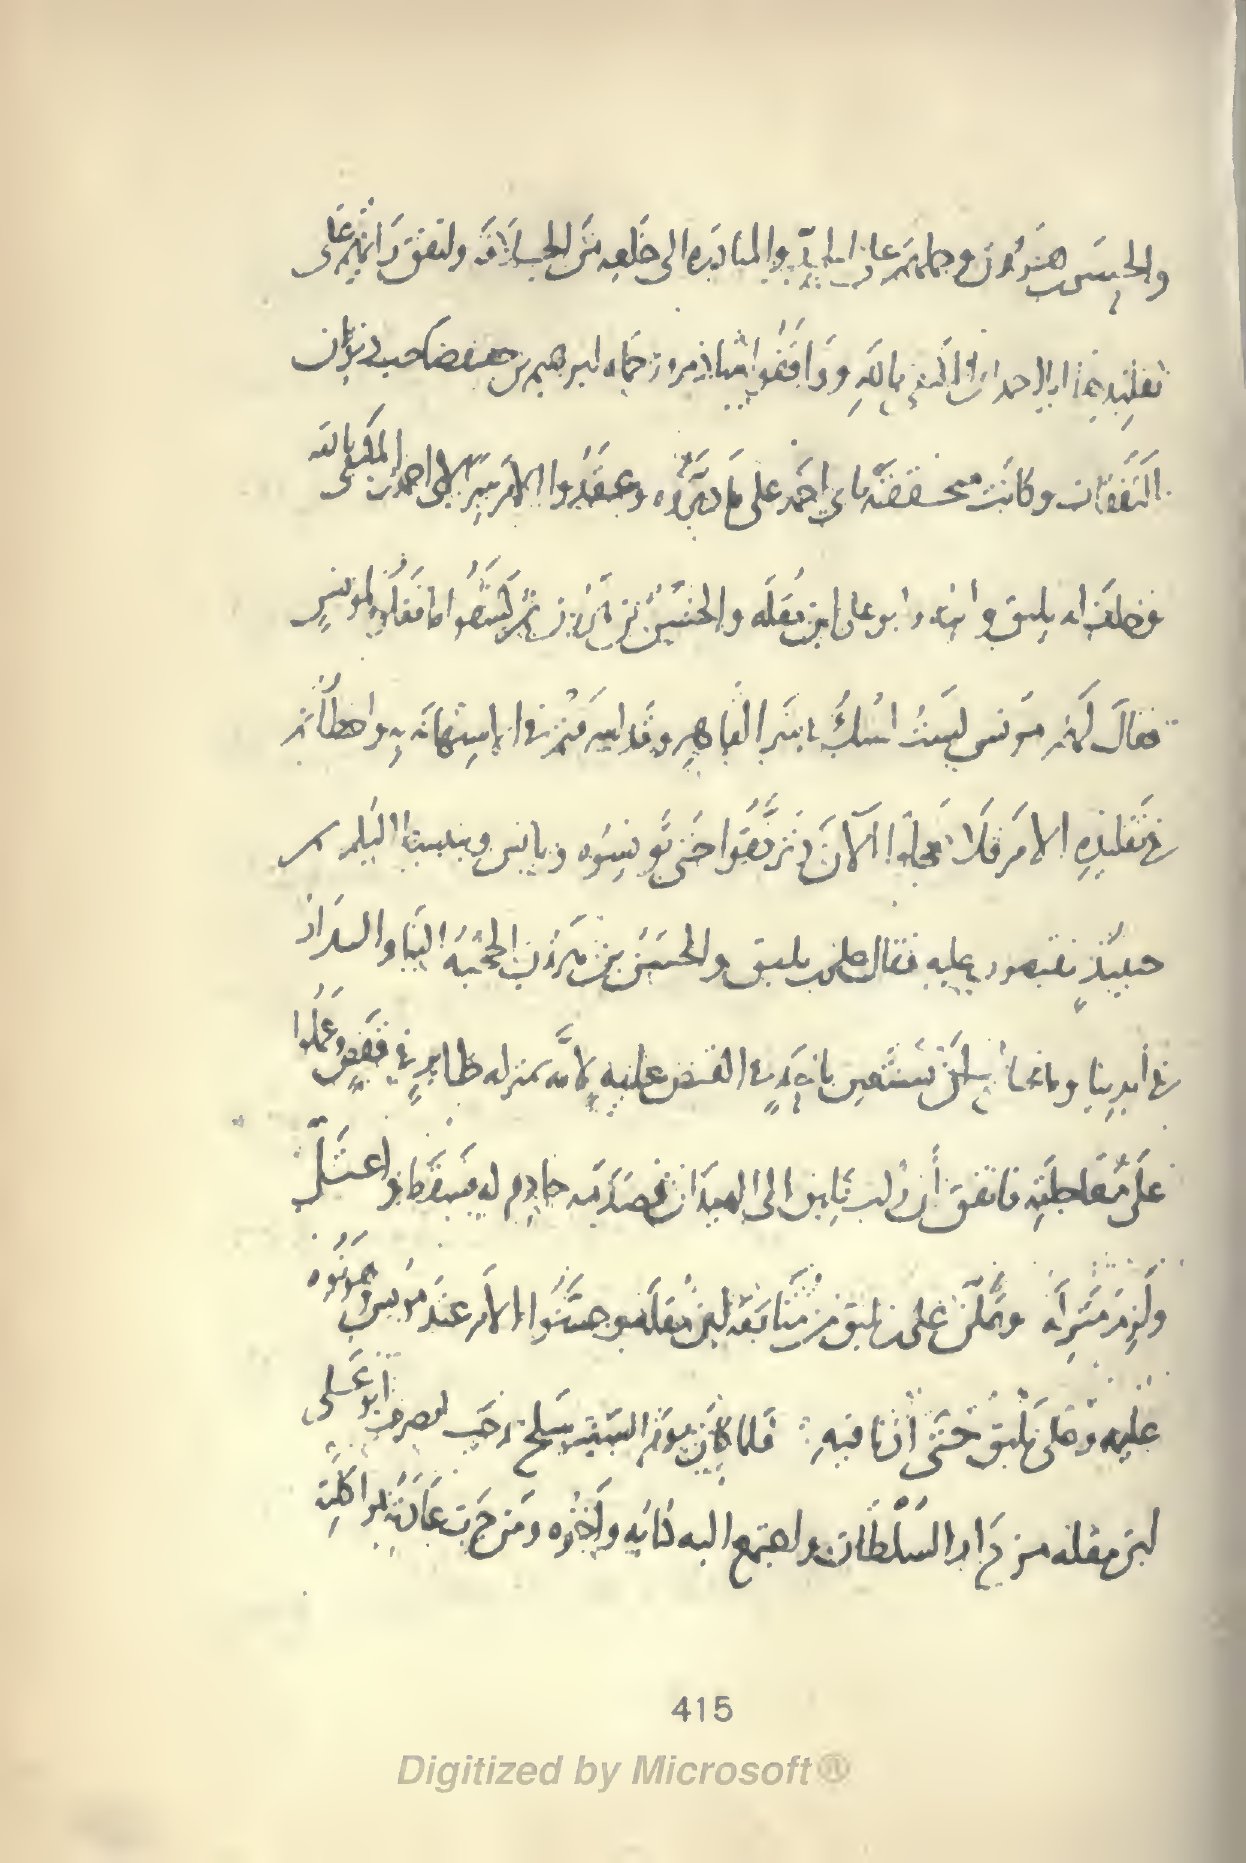 والحسن بن هرون وجماعتهم على المبادرة الى خلعه من الخلافة واتفق رأيهم على
تقليدها ابا احمد ابن المكتفي بالله ووافقوا ابراهيم بن صاحب ديوان
النفقات وكانت متحققة بابي احمد على ما دبروه وعقدوا الامر سرا لابي احمد بن المكتفي بالله
فحلف له بليق وابنه وابو علي ابن مقلة والحسن بن هرون ثم كشفوا ما فعلوه لمونس
فقال لهم مونس لست اشك في شر القاهر وقد اسرفتم في استهانته واخطاتم
في تقليده الامر فلا تعجلوا الان وترفقوا حتى تونسوه ويانس وينبسط اليكم ثم
حينئذ تقبضون عليه فقال علي بن بليق والحسن بن هرون الحجبة الينا والدار
في ايدينا وما نحتاج ان نستعين باحد في القبض عليه لانه بمنزلة طاير في قفص وعملوا
على معاجلته فاتفق أن ركب بليق الى الميدان فصدمه خادم له فسقط واعتل
ولزم منزله وتمكن علي بن بليق من متابعة ابن مقلة وحسنوا الامر عند مونس وهونوه
عليه وعلى بليق حتى اذنا فيه فلما كان يوم السبت سلخ رجب انصرف أبو علي
ابن مقلة من دار السلطان واجتمع اليه كتابه واخوه ومن جرت عادته بمواكلته
415
Digitized by Microsoft®